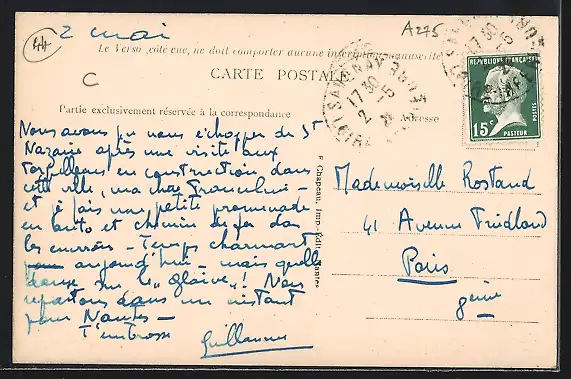 44
2 mai
A275
Le Verso, côté vue, ne doit comporter aucune inscription manuscrite
C
CARTE POSTALE
Partie exclusivement réservée à la correspondance
Adresse
SAVENAY
17 30
2 -5
REPUBLIQUE FRANÇAISE
POSTES
15c
PASTEUR
Nous avons pu nous échapper de St
Nazaire après une visite aux
torpilleurs en construction dans
cette ville, ma chère
et je fais une petite promenade
en auto et chemin de fer dans
les environs - Temps charmant
aujourd'hui - mais quelle
danse sur le "glaive"! Nous
repartons dans un instant
pour Nantes -
T'embrasse
Guillaume
F. Chapeau, Imp.-Édit., Nantes
Mademoiselle Rostand
41 Avenue Friedland
Paris
8ème